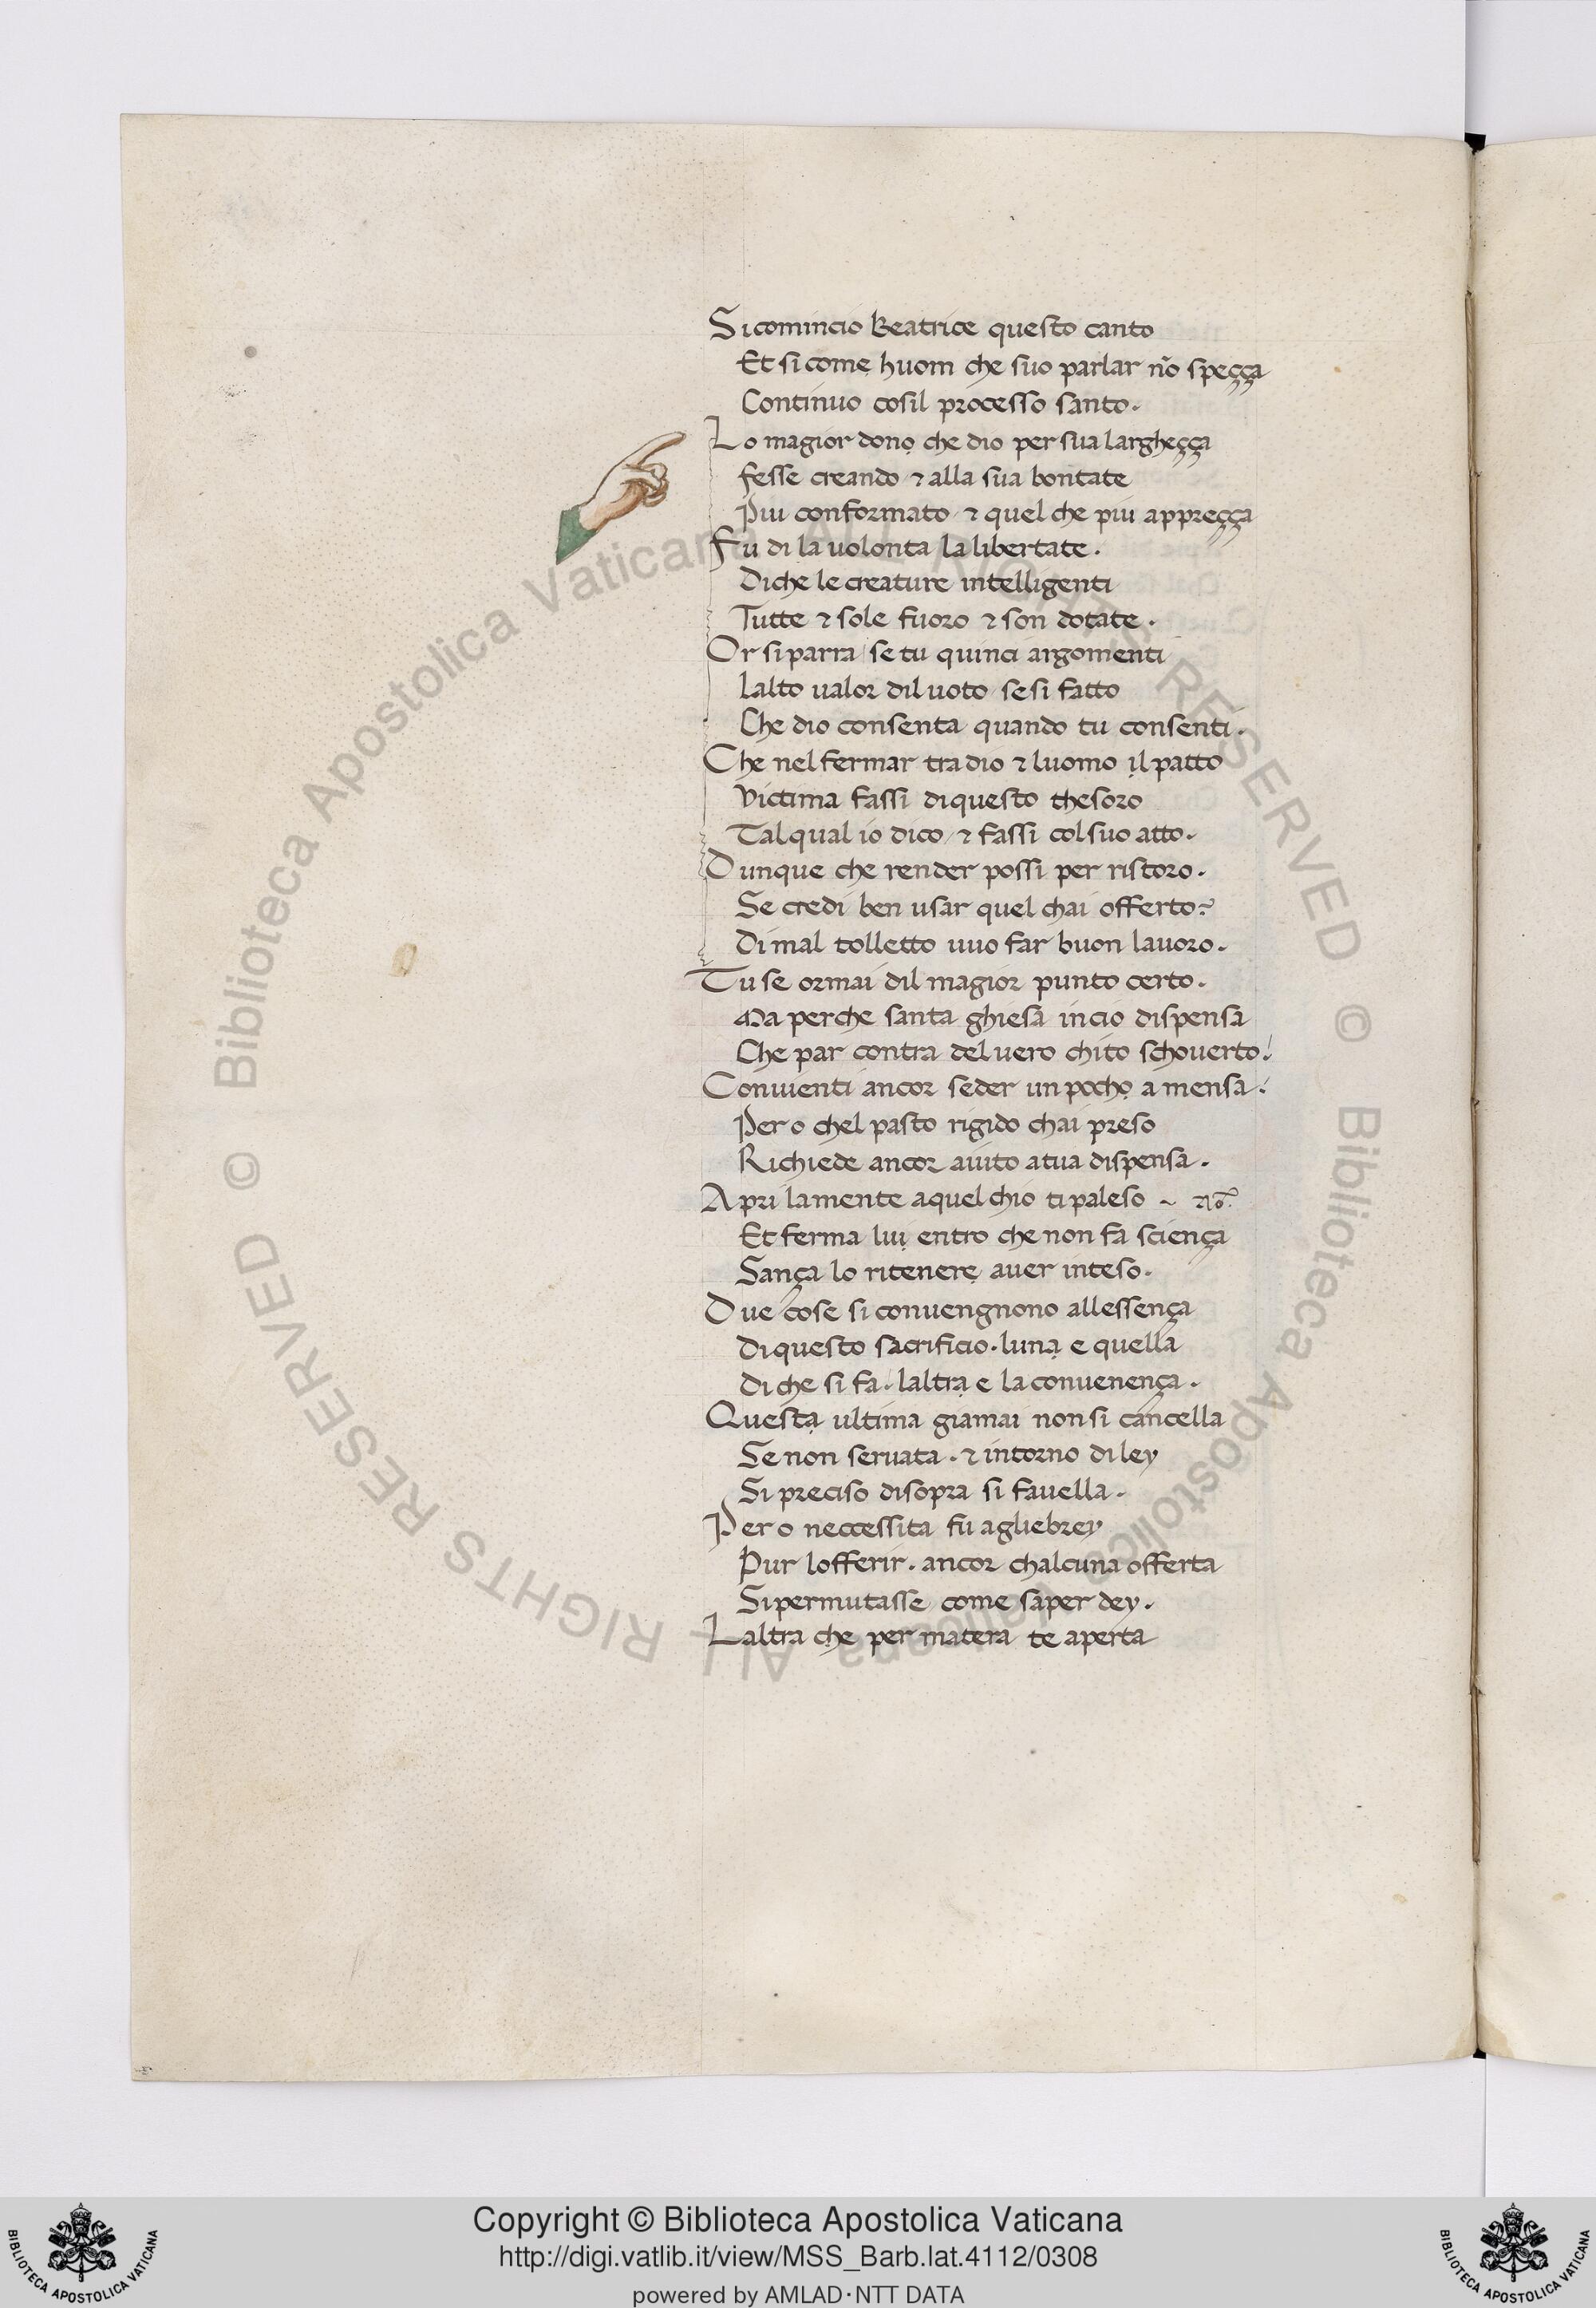 Si comincio Beatrice questo canto
Et si come huom che suo parlar nõ speçça
Continuo cosil processo santo.
Lo magior donọ che dio per sua largheçça
fesse creando ⁊ alla sua bontate
Piu conformato / ⁊ quel che piu appreçça
Fu di la uolonta la libertate.
Di che le creature intelligenti
Tutte ⁊ sole fuoro ⁊ son dotate.
Or si parra / se tu quinci argomenti
Lalto ualor dil uoto / se si fatto
Che dio consenta quando tu consenti.
Che nel fermar tra dio ⁊ luomo il patto
Victima fassi di questo thesoro
Tal qual io dico / ⁊ fassi col suo atto.
Dunque che render possi per ristoro.
Se credi ben usar quel chai offerto?
Di mal tolletto uuo far buon lauoro.
Tu se ormai dil magior punto certo.
Ma perche santa ghiesa in cio dispensa
Che par contra del uero chito schouerto!
Conuienti ancor seder un pochọ a mensa!
Pero chel pasto rigido chai preso
Richiede ancor aiuto a tua dispensa.
Apri la mente a quel chio ti paleso ~ no.
Et ferma luị entro che non fa sciença
Sança lo ritenerẹ auer inteso.
Due cose si conuengnono allessença
Di questo sacrificio. lunạ e quella
Di che si fa. laltrạ e la conuenença.
Questạ ultima giamai non si cancella
Se non seruata. ⁊ intorno di ley
Si preciso di sopra si fauella.
Pero neccessita fu agliebrey
Pur lofferir. ancor chalcuna offerta
Si permutasse / come saper dey.
Laltra che per matera te aperta
© Biblioteca Apostolica Vaticana ALL RIGHTS RESERVED © Biblioteca Apostolica Vaticana ALL RIGHTS RESERVED
Copyright © Biblioteca Apostolica Vaticana
http://digi.vatlib.it/view/MSS_Barb.lat.4112/0308
powered by AMLAD·NTT DATA
BIBLIOTECA APOSTOLICA VATICANA
BIBLIOTECA APOSTOLICA VATICANA